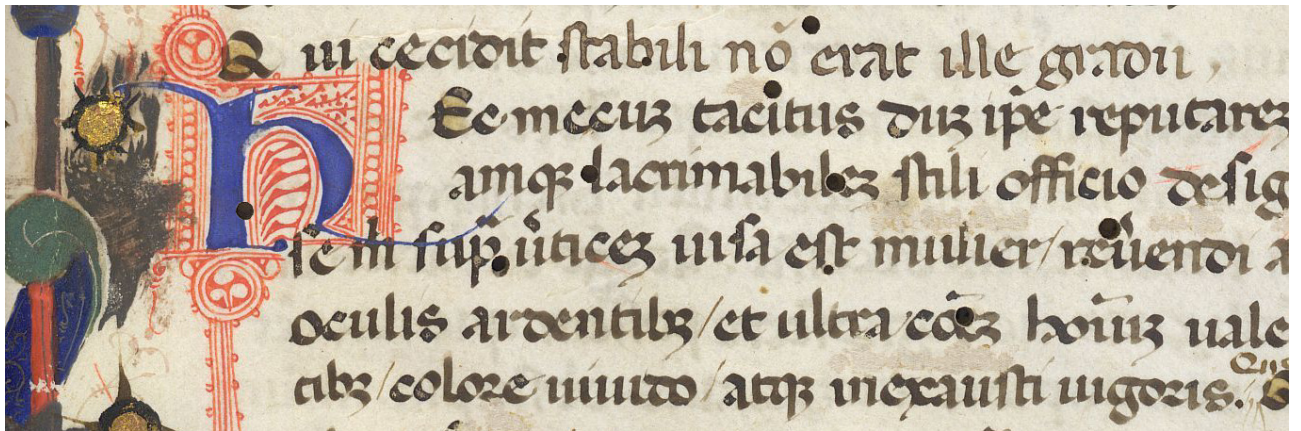 Qui cecidit stabili nõ erat ille gradu
hEc mecuʒ tacitus duʒ ip̄e reputareʒ
amqʒ lacrimabileʒ stili officio desig
se m̄ sup̱ u̓ticeʒ uisa est mulier / reu̓endi a
oculis ardentibʒ / et ultra cōeʒ hoīuʒ uale
tibʒ / colore uiuido / atqʒ inexausti uigoris.